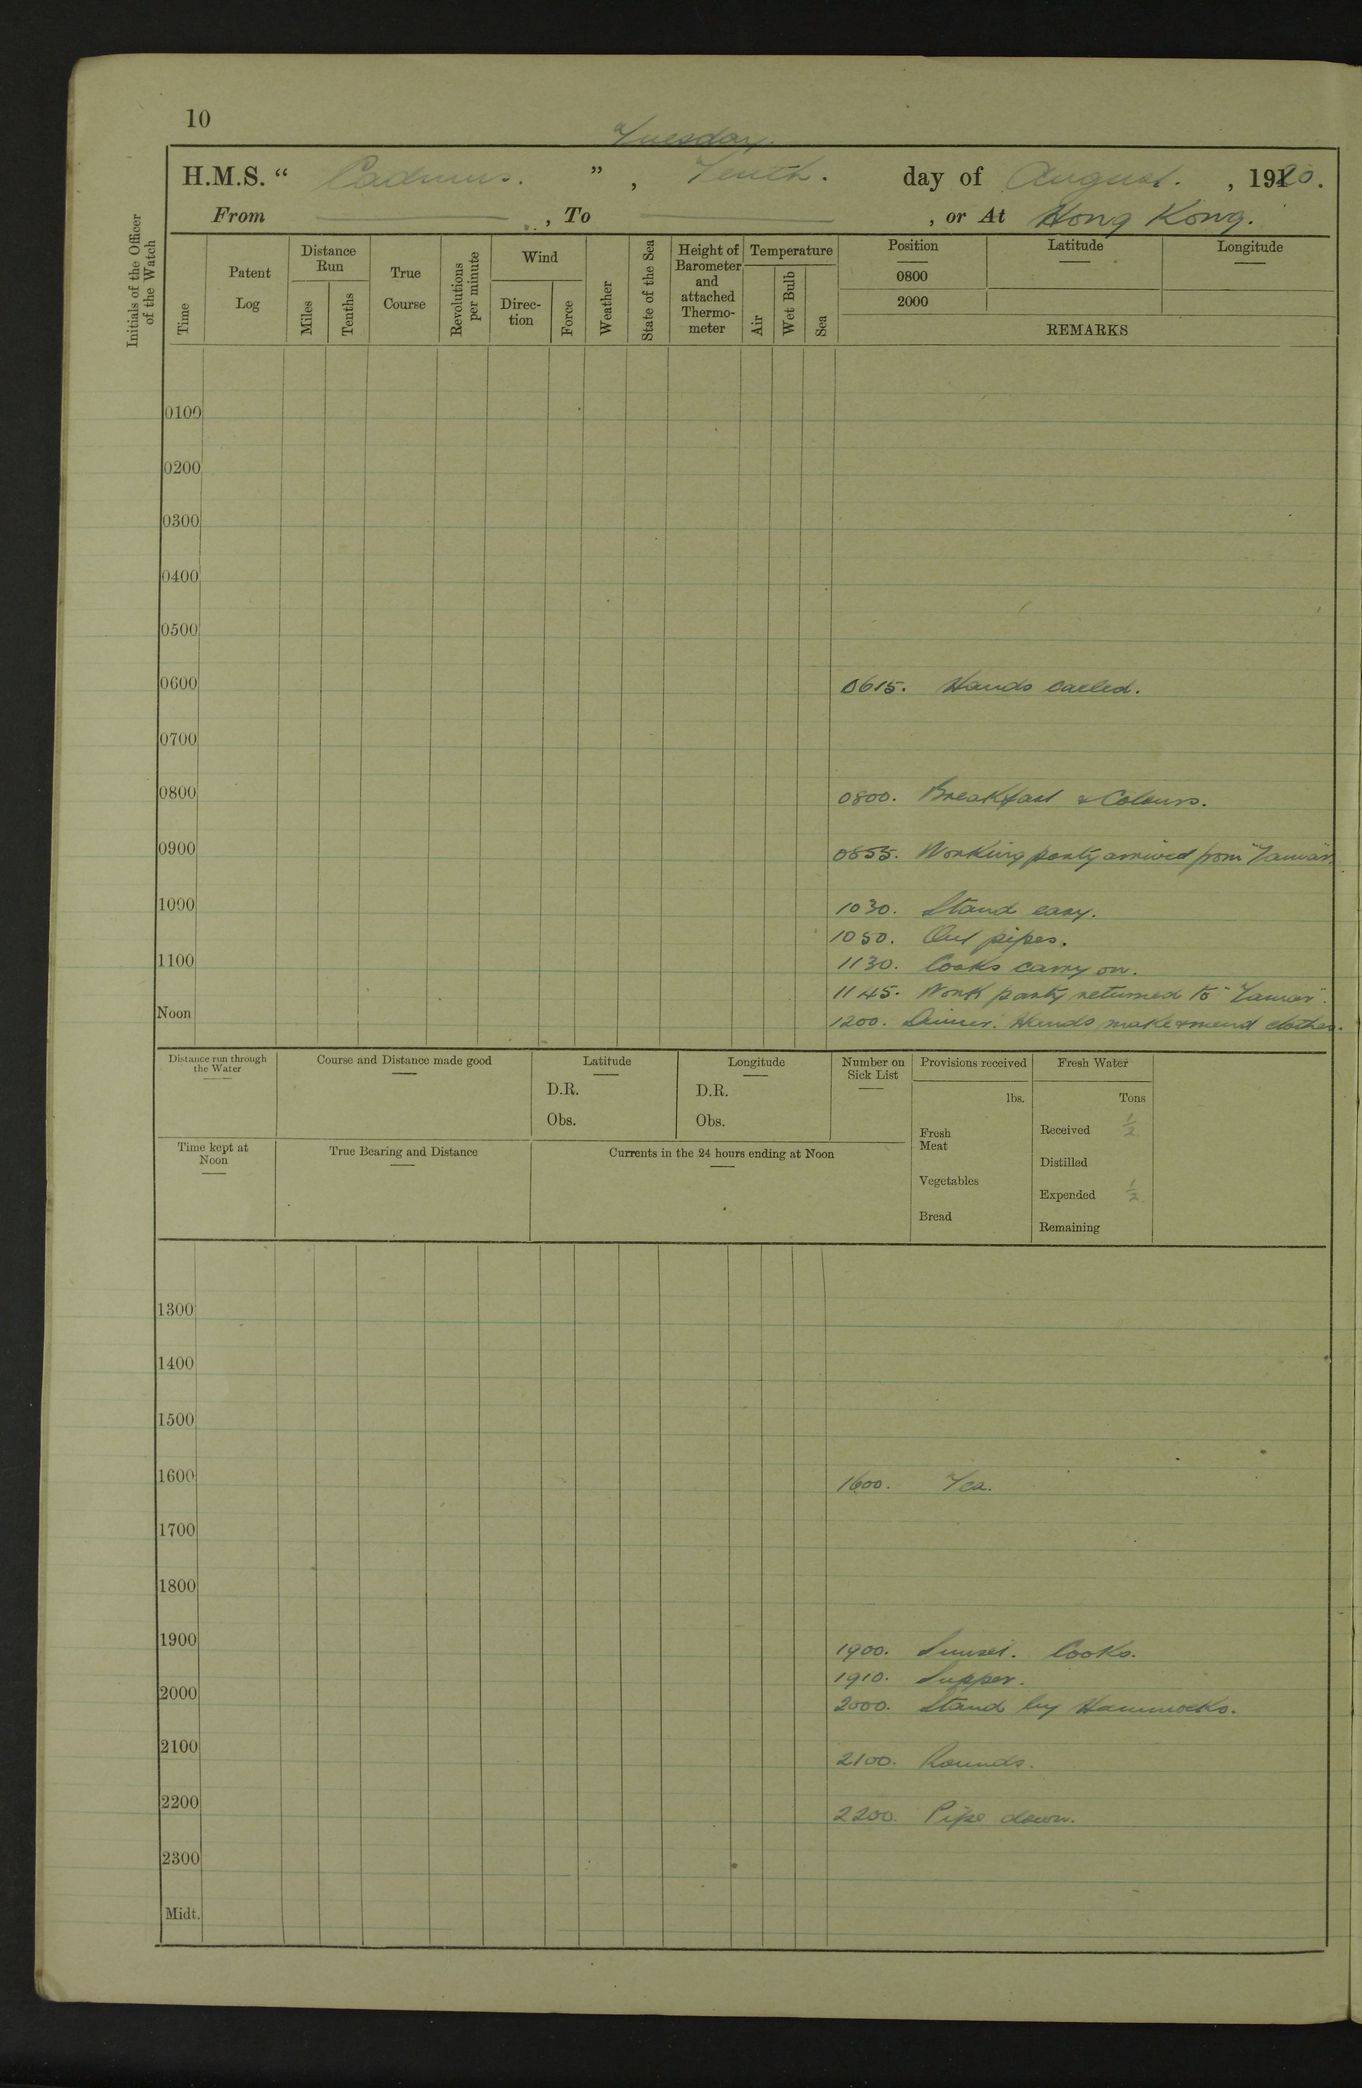 10
Tuesday.
H.M.S. “ Cadmus. ” , Tenth. day of August. , 1920.
From , To , or At Hong Kong.
Initials of the Officer of the Watch
Time
Patent Log
Distance Run
Miles
Tenths
True Course
Revolutions per minute
Wind
Direc-tion
Force
Weather
State of the Sea
Height of Barometer and attached Thermo-meter
Temperature
Air
Wet Bulb
Sea
Position
Latitude
Longitude
0800
2000
REMARKS
0100
0200
0300
0400
0500
0600 0615. Hands called.
0700
0800 0800. Breakfast & Colours.
0900 0855. Working party arrived from "Tamar".
1000 1030. Stand easy.
1050. Out pipes.
1100 1130. Cooks carry on.
1145. Work party returned to "Tamar".
Noon 1200. Dinner. Hands make & mend clothes.
Distance run through the Water
Course and Distance made good
Latitude
D.R.
Obs.
Longitude
D.R.
Obs.
Number on Sick List
Provisions received
lbs.
Fresh Meat
Vegetables
Bread
Fresh Water
Tons
Received ½
Distilled
Expended ½
Remaining
Time kept at Noon
True Bearing and Distance
Currents in the 24 hours ending at Noon
1300
1400
1500
1600 1600. Tea.
1700
1800
1900 1900. Sunset. Cooks.
1910. Supper.
2000 2000. Stand by Hammocks.
2100 2100. Rounds.
2200 2200. Pipe down.
2300
Midt.